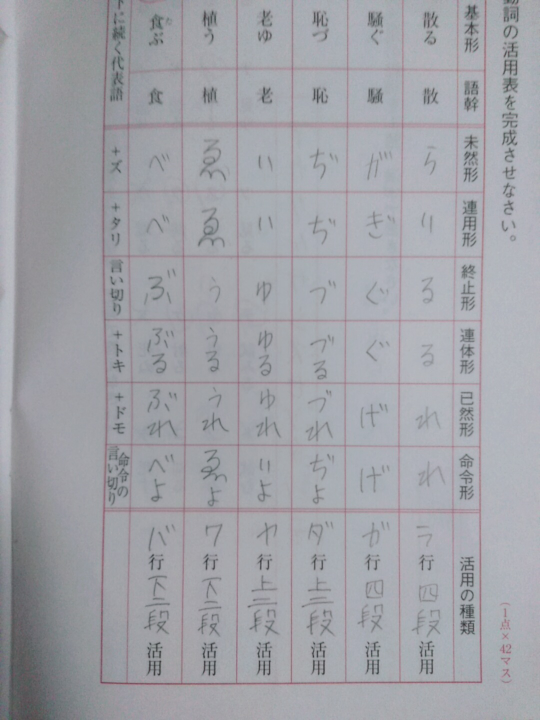 動詞の活用表を完成させなさい。
(1点×42マス)
基本形 語幹 未然形 連用形 終止形 連体形 已然形 命令形 活用の種類
散る 散 ら り る る れ れ ラ行四段活用
騒ぐ 騒 が ぎ ぐ ぐ げ げ ガ行四段活用
恥づ 恥 ぢ ぢ づ づる づれ ぢよ ダ行上二段活用
老ゆ 老 い い ゆ ゆる ゆれ いよ ヤ行上二段活用
植う 植 ゑ ゑ う うる うれ ゑよ ワ行下二段活用
食ぶ 食 べ べ ぶ ぶる ぶれ べよ バ行下二段活用
下に続く代表語 +ズ +タリ 言い切り +トキ +ドモ 命令の言い切り